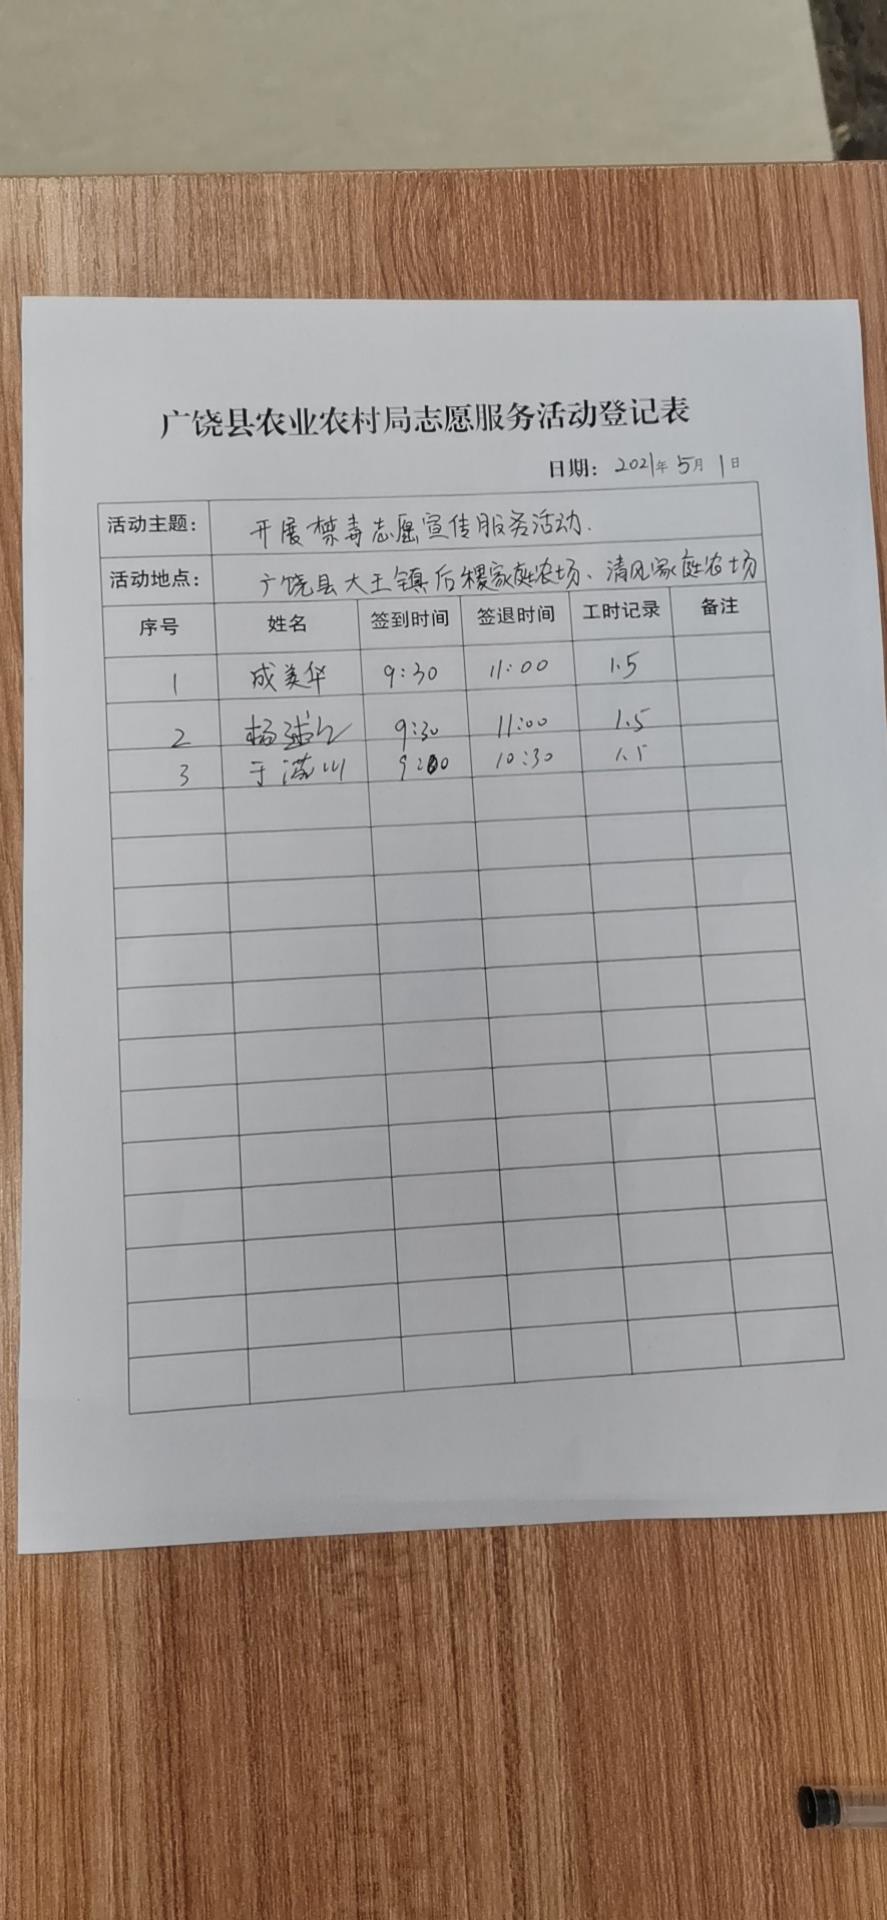 广饶县农业农村局志愿服务活动登记表
日期：2021年5月1日
活动主题： 开展禁毒志愿宣传服务活动.
活动地点： 广饶县大王镇后稷家庭农场、清风家庭农场
序号 姓名 签到时间 签退时间 工时记录 备注
1 成美华 9:30 11:00 1.5
2 杨 9:30 11:00 1.5
3 于 川 9:00 10:30 1.5